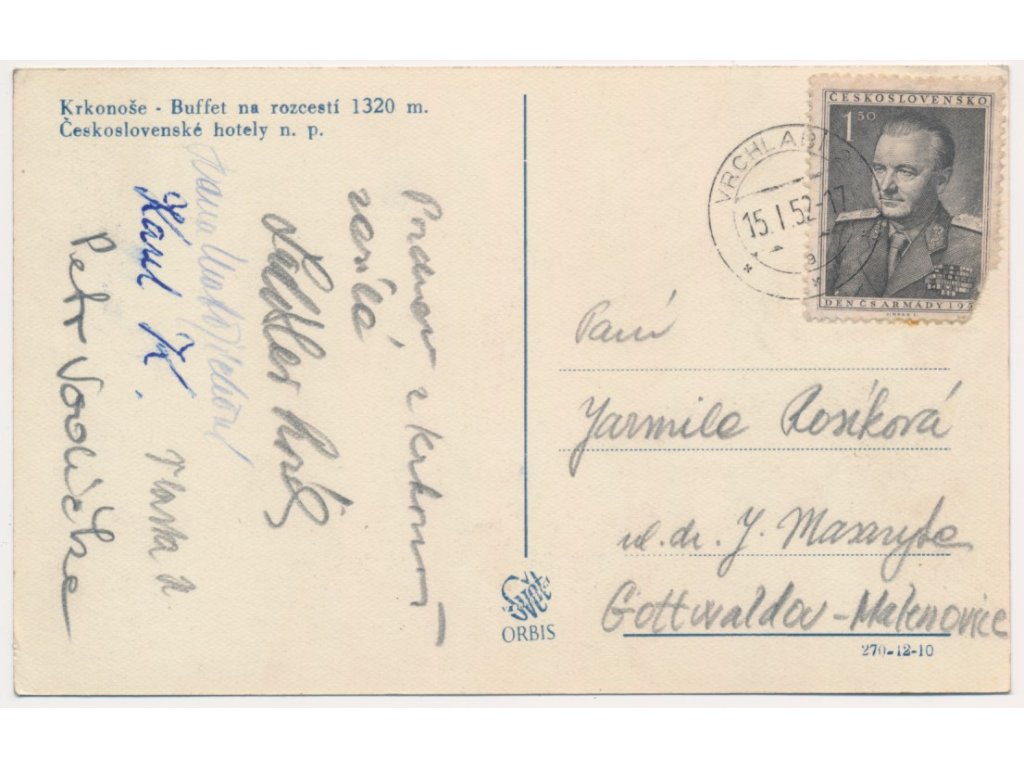 Krkonoše - Buffet na rozcestí 1320 m.
Československé hotely n. p.
Pozdrav z Krkonoš
zasílá
Karel K.
Vlasta
Petr
ČESKOSLOVENSKO
1 50
DEN ČS ARMÁDY 195
VRCHLABÍ
15.I.52-17
a
Paní
Jarmila Rosíková
ul. dr. J. Masaryka
Gottwaldov-Malenovice
Svět
ORBIS
270-12-10